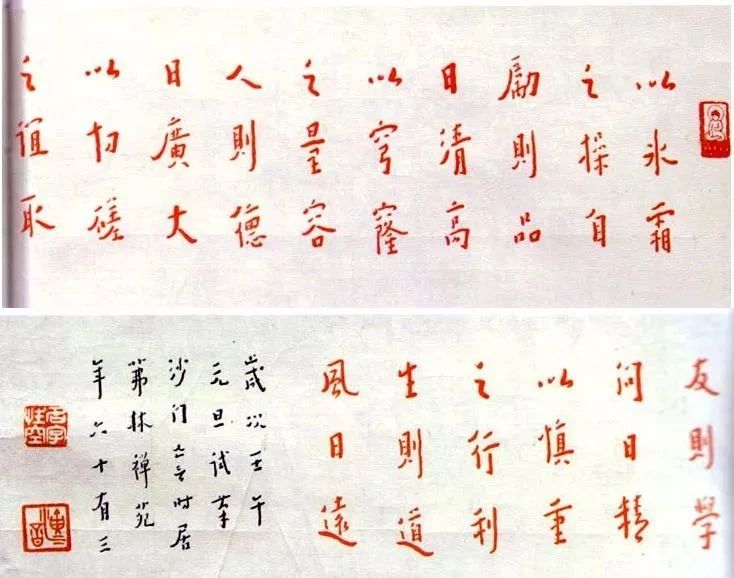 以氷霜
之操自
勵則品
日清高
以穹窿
之量容
人則德
日廣大
以切磋
之誼取
友則學
問日精
以慎重
之行利
生則道
風日遠
歲次壬午
元旦試筆
沙門亡言时居
茀林禪苑
年六十有三
名字性空
演音